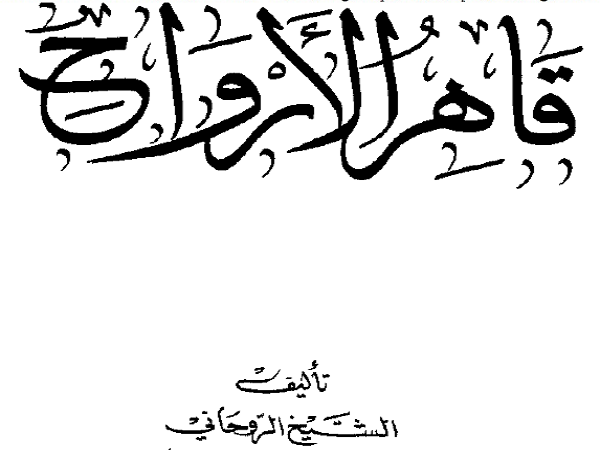 قاهر الأرواح
تأليف
الشيخ الروحاني